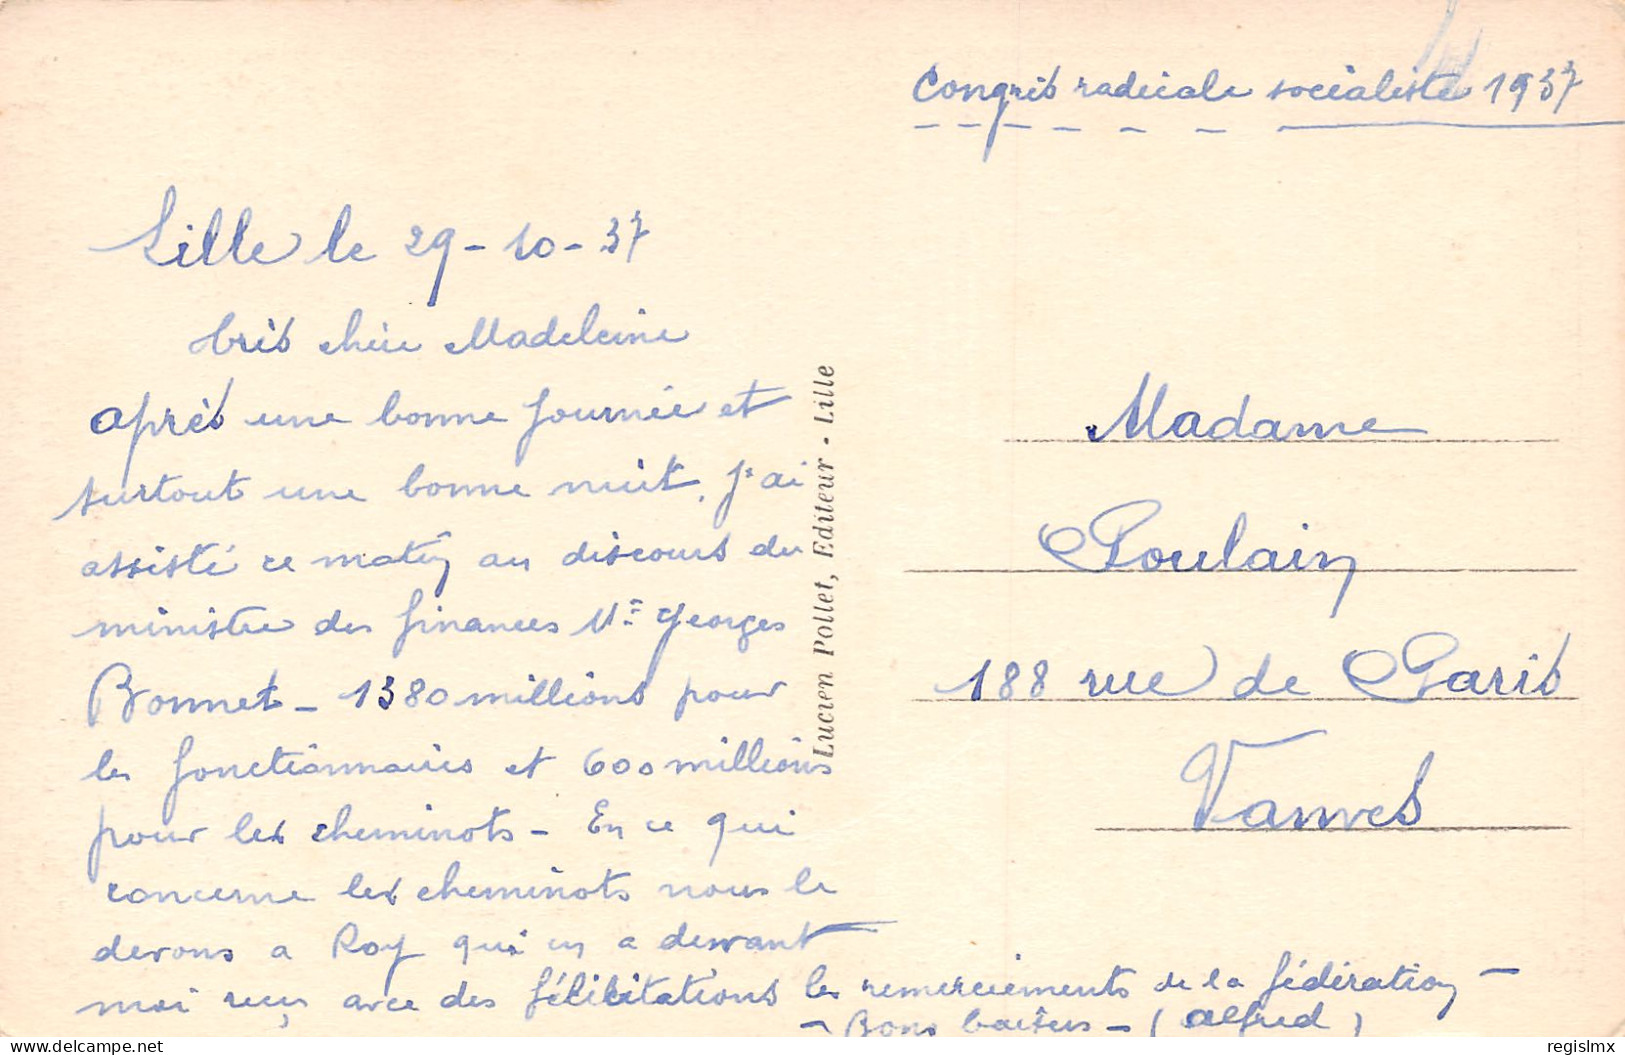 Congrès radicale socialiste 1937
Lille le 29-10-37
très chère Madeleine
après une bonne journée et
surtout une bonne nuit. J'ai
assisté ce matin au discours du
ministre des finances Mr Georges
Bonnet - 1380 millions pour
les fonctionnaires et 600 millions
pour les cheminots - En ce qui
concerne les cheminots nous le
devons a Roy qui en a devant
moi reçu avec des félicitations les remerciements de la fédération -
- Bons baisers - (Alfred)
Lucien Pollet, Editeur - Lille
Madame
Poulain
188 rue de Paris
Vanves
delcampe.net
regislmx